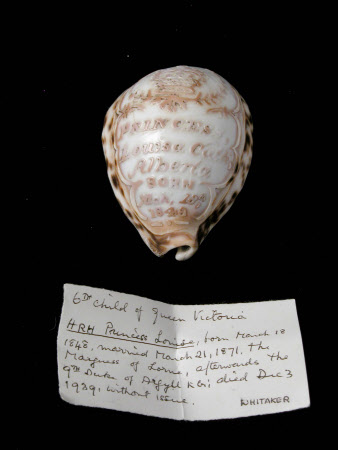 PRINCESS
Louise
Alberta
BORN
6th child of Queen Victoria
HRH Princess Louise, born March 18
1848. married March 21, 1871, the
Marquess of Lorne, afterwards the
9th Duke of Argyll K.G; died Dec 3
1939, without issue.
WHITAKER